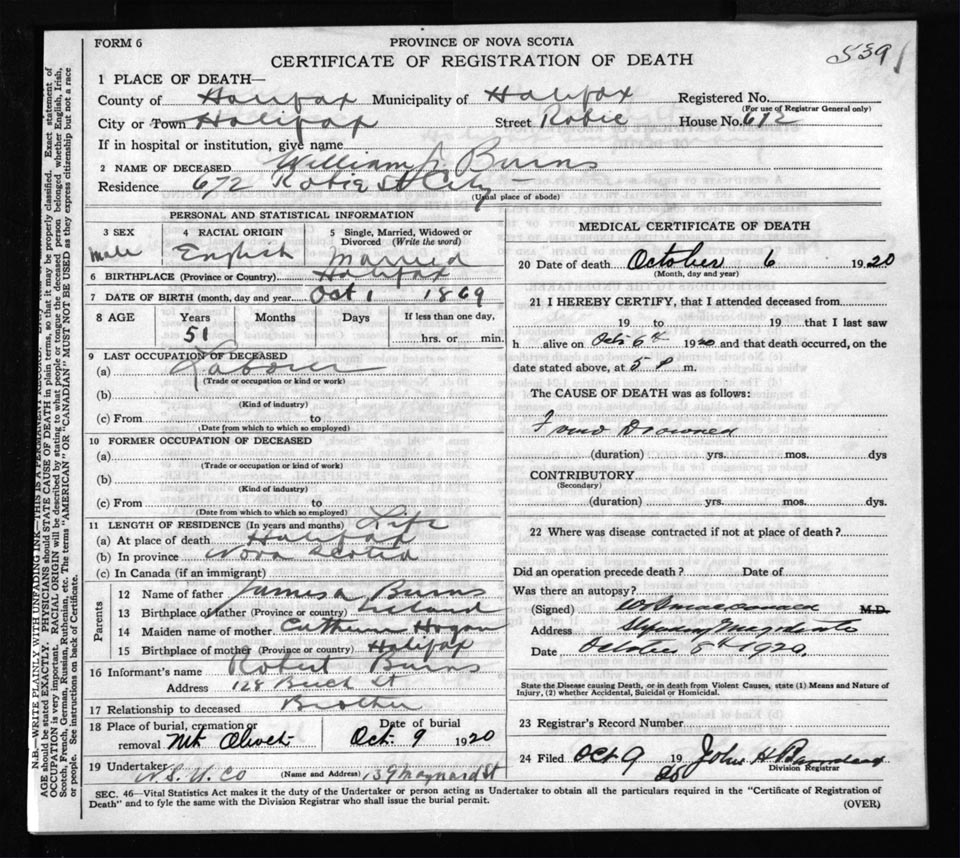 FORM 6
PROVINCE OF NOVA SCOTIA
CERTIFICATE OF REGISTRATION OF DEATH
539
1 PLACE OF DEATH—
County of Halifax Municipality of Halifax Registered No.
(For use of Registrar General only)
City or Town Halifax Street Robie House No. 672
If in hospital or institution, give name
2 NAME OF DECEASED William J. Burns
Residence 672 Robie St City
(Usual place of abode)
PERSONAL AND STATISTICAL INFORMATION
3 SEX
male
4 RACIAL ORIGIN
English
5 Single, Married, Widowed or Divorced (Write the word)
Married
6 BIRTHPLACE (Province or Country) Halifax
7 DATE OF BIRTH (month, day and year) Oct 1 1869
8 AGE Years Months Days If less than one day,
51 hrs. or min.
9 LAST OCCUPATION OF DECEASED
(a) Laborer
(Trade or occupation or kind or work)
(b)
(Kind of industry)
(c) From to
(Date from which to which so employed)
10 FORMER OCCUPATION OF DECEASED
(a)
(Trade or occupation or kind or work)
(b)
(Kind of industry)
(c) From to
(Date from which to which so employed)
11 LENGTH OF RESIDENCE (In years and months) Life
(a) At place of death Halifax
(b) In province Nova Scotia
(c) In Canada (if an immigrant)
Parents
12 Name of father James Burns
13 Birthplace of father (Province or country) Ireland
14 Maiden name of mother Catherine Hogan
15 Birthplace of mother (Province or country) Halifax
16 Informant's name Robert Burns
Address 128 Birch St
17 Relationship to deceased Brother
18 Place of burial, cremation or removal Mt Olivet
Date of burial Oct. 9 1920
19 Undertaker N.S. U. Co (Name and Address) 139 Maynard St
MEDICAL CERTIFICATE OF DEATH
20 Date of death October 6 1920
(Month, day and year)
21 I HEREBY CERTIFY, that I attended deceased from
19 to 19 that I last saw
h alive on Oct 6th 1920 and that death occurred, on the
date stated above, at 5 P m.
The CAUSE OF DEATH was as follows:
Found Drowned
(duration) yrs. mos. dys
CONTRIBUTORY
(Secondary)
(duration) yrs. mos. dys.
22 Where was disease contracted if not at place of death?
Did an operation precede death? Date of
Was there an autopsy?
(Signed) MacDonald M.D.
Address
Date October 8th 1920.
State the Disease causing Death, or in death from Violent Causes, state (1) Means and Nature of
Injury, (2) whether Accidental, Suicidal or Homicidal.
23 Registrar's Record Number
24 Filed Oct 9 1920 John H Barnstead
Division Registrar
SEC. 46—Vital Statistics Act makes it the duty of the Undertaker or person acting as Undertaker to obtain all the particulars required in the "Certificate of Registration of
Death" and to fyle the same with the Division Registrar who shall issue the burial permit.
(OVER)
N.B.—WRITE PLAINLY WITH UNFADING INK—THIS IS A PERMANENT RECORD.
AGE should be stated EXACTLY. PHYSICIANS should STATE CAUSE OF DEATH in plain terms, so that it may be properly classified. Exact statement of
OCCUPATION is very important. RACIAL ORIGIN will be described by stating to what people or tongue the deceased person belonged whether English, Irish,
Scotch, French, German, Russian, Ruthenian, etc. The terms "AMERICAN" OR "CANADIAN" MUST NOT BE USED as they express citizenship but not a race
or people. See instructions on back of Certificate.